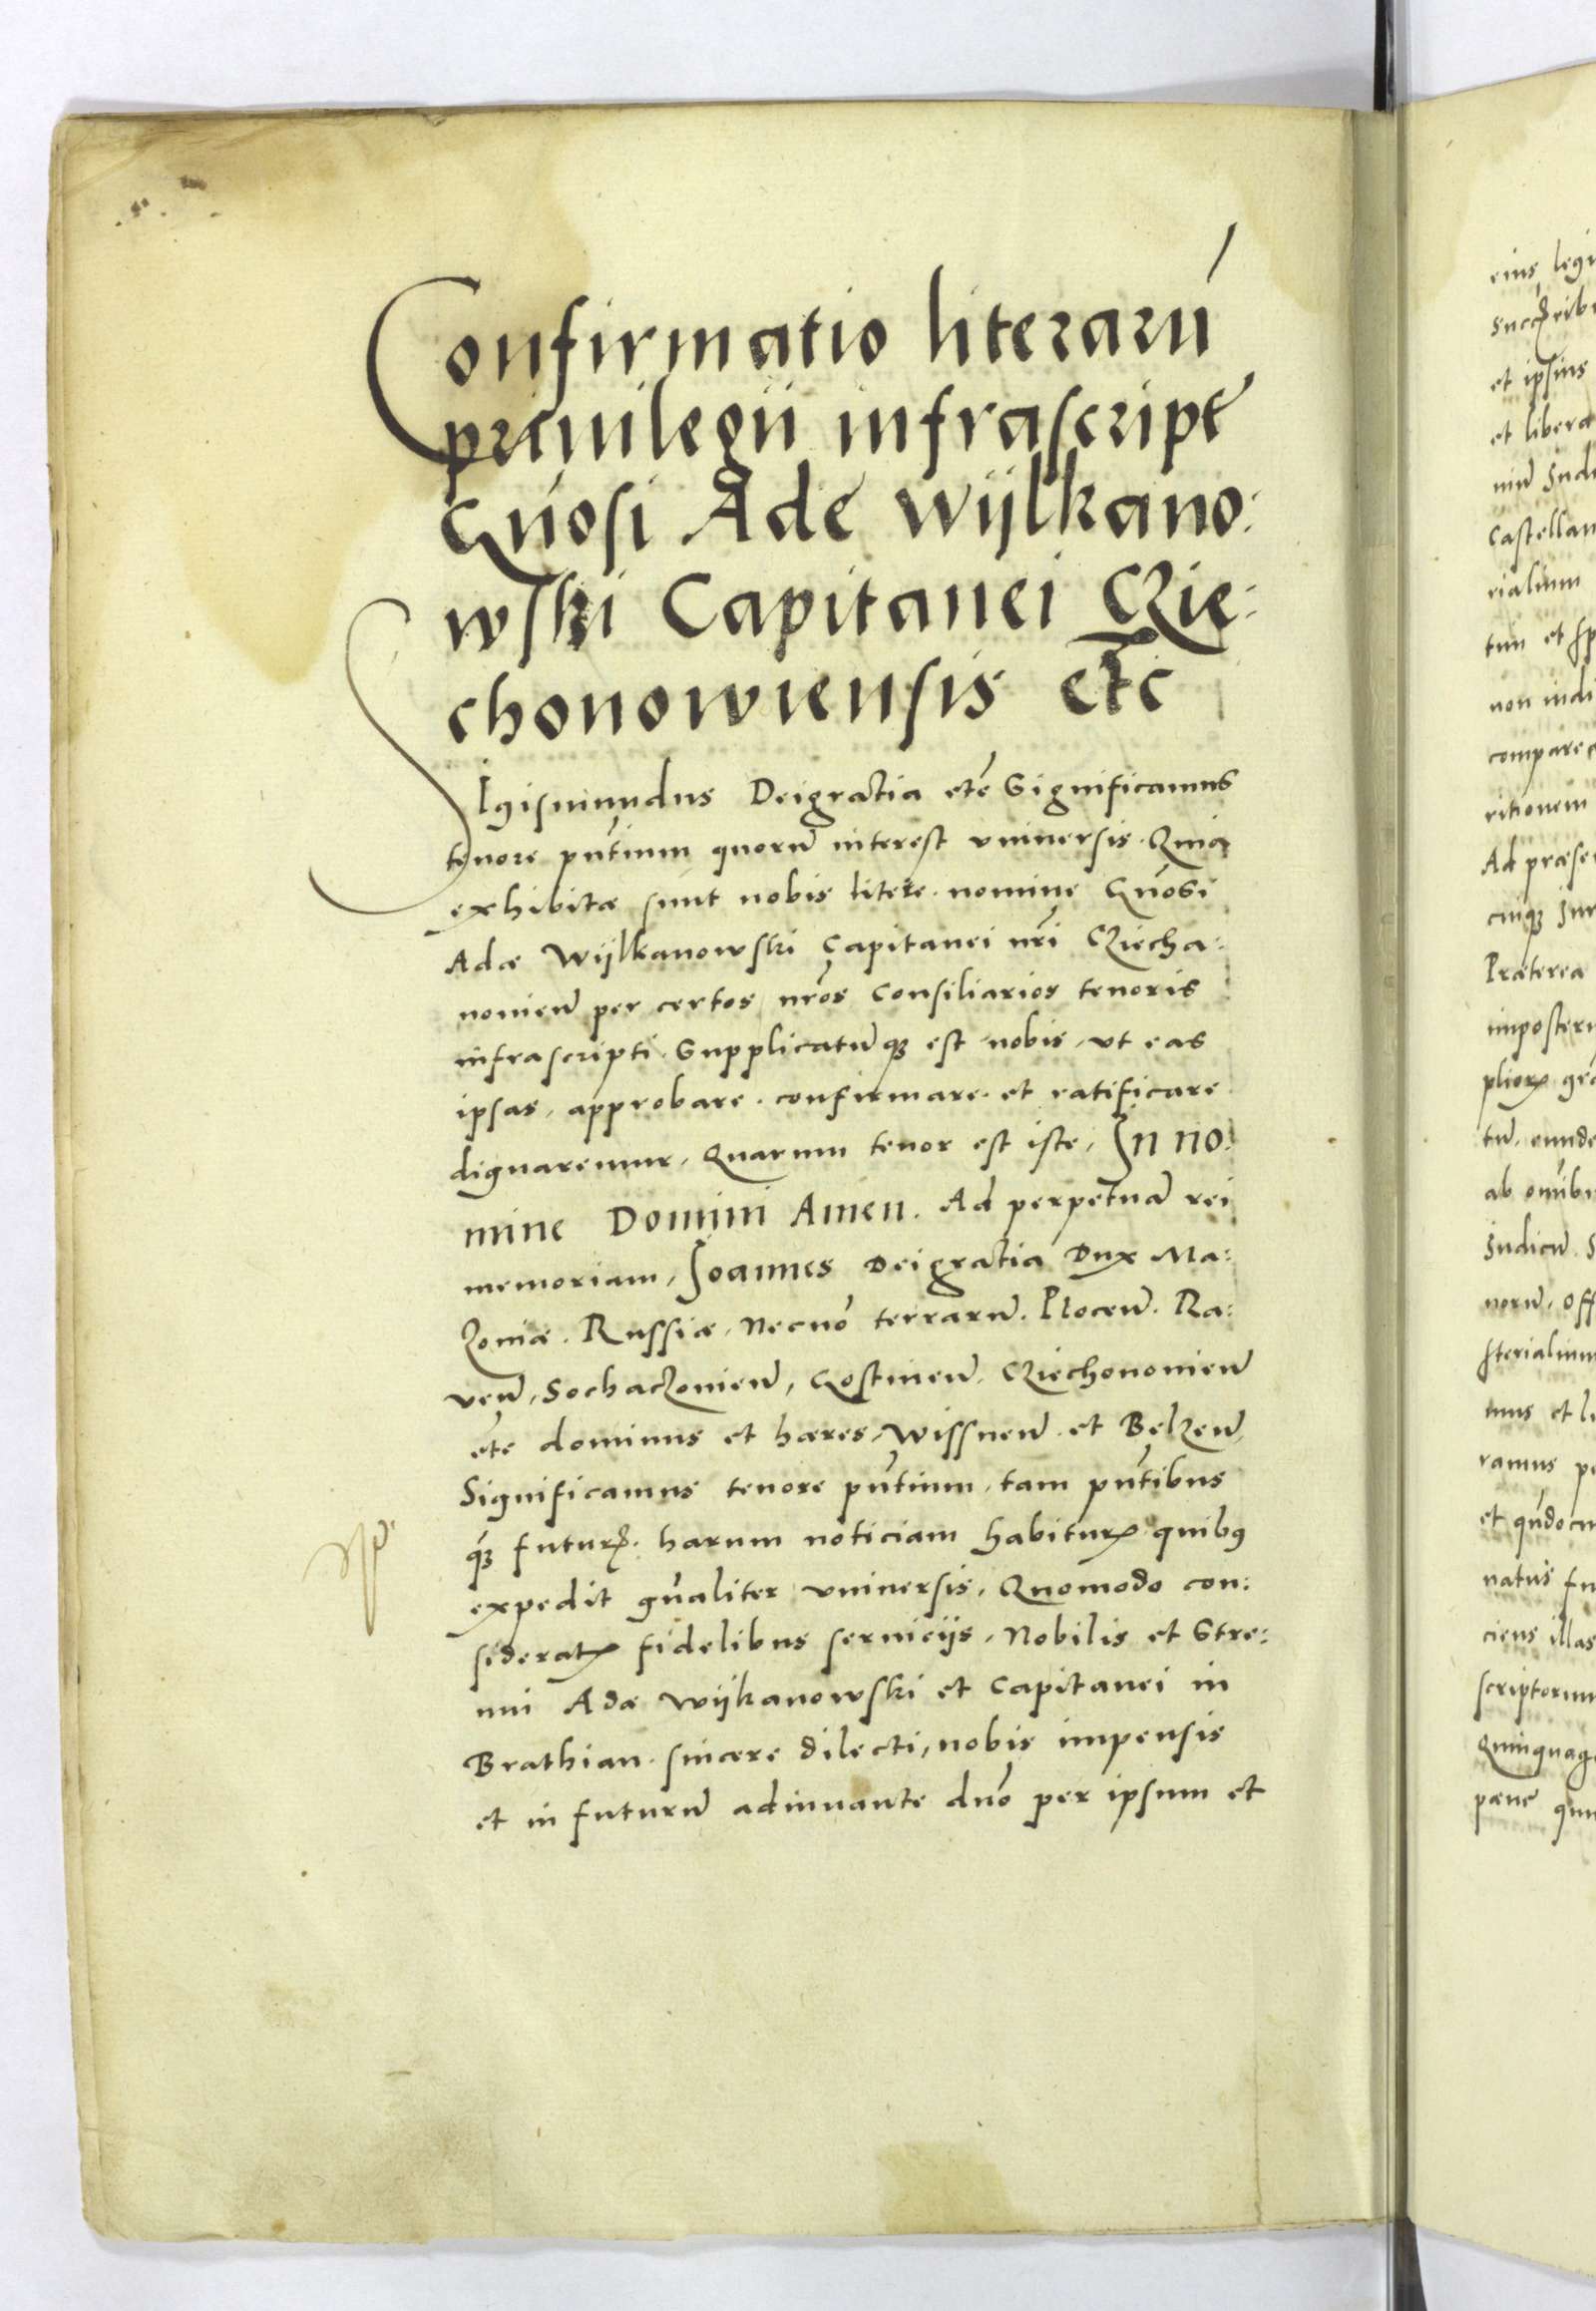 Confirmatio literarū
priuilegii infrascripte
Gn̄osi Ade Wijlkano:
wski Capitanei Czie:
chonowiensis etc
Sigismundus Deigratia etc̄ Significamus
tenore pn̄tium quorū interest vniuersis. Quia
exhibitæ sunt nobis literæ nomine Gn̄osi
Adæ Wijlkanowski Capitanei nr̄i Cziecha:
nouien̄ per certos nr̄os Consiliarios tenoris
infrascripti. Supplicatūq3 est nobis, vt eas
ipsas, approbare. confirmare. et ratificare
dignaremur, Quarum tenor est iste, In no:
mine Domini Amen. Ad perpetuā rei
memoriam, Joannes Deigratia Dux Ma:
zouiæ. Russiæ, Necnō terrarū. Plocen̄. Ra:
uen̄, Sochaczouien̄, Gostinen̄. Cziechonouien̄
etc̄ dominus et hæres, Wissnen̄. et Belzen̄,
Significamus tenore pn̄tium, tam pn̄tibus
q̄3 futurꝭ. harum noticiam habiturꝭ quibꝰ
expedit gn̄aliter vniuersis, Quomodo con:
sideratꝭ fidelibus seruicijs, Nobilis et Stre:
nui Adæ wijkanowski et Capitanei in
Brathian. sincere dilecti, nobis impensis
et in futurū adiuuante dn̄o per ipsum et
eius legi
et ipsius
et libera
Castellan
rialium
non iudi
compare
ritionem
Ad præse
Præterea
imposter
ab om̄ib
Judicū. S
norū. Off
sterialium
mus et li
ramus p
natus fu
ciens illas
scriptorum
Quinquag